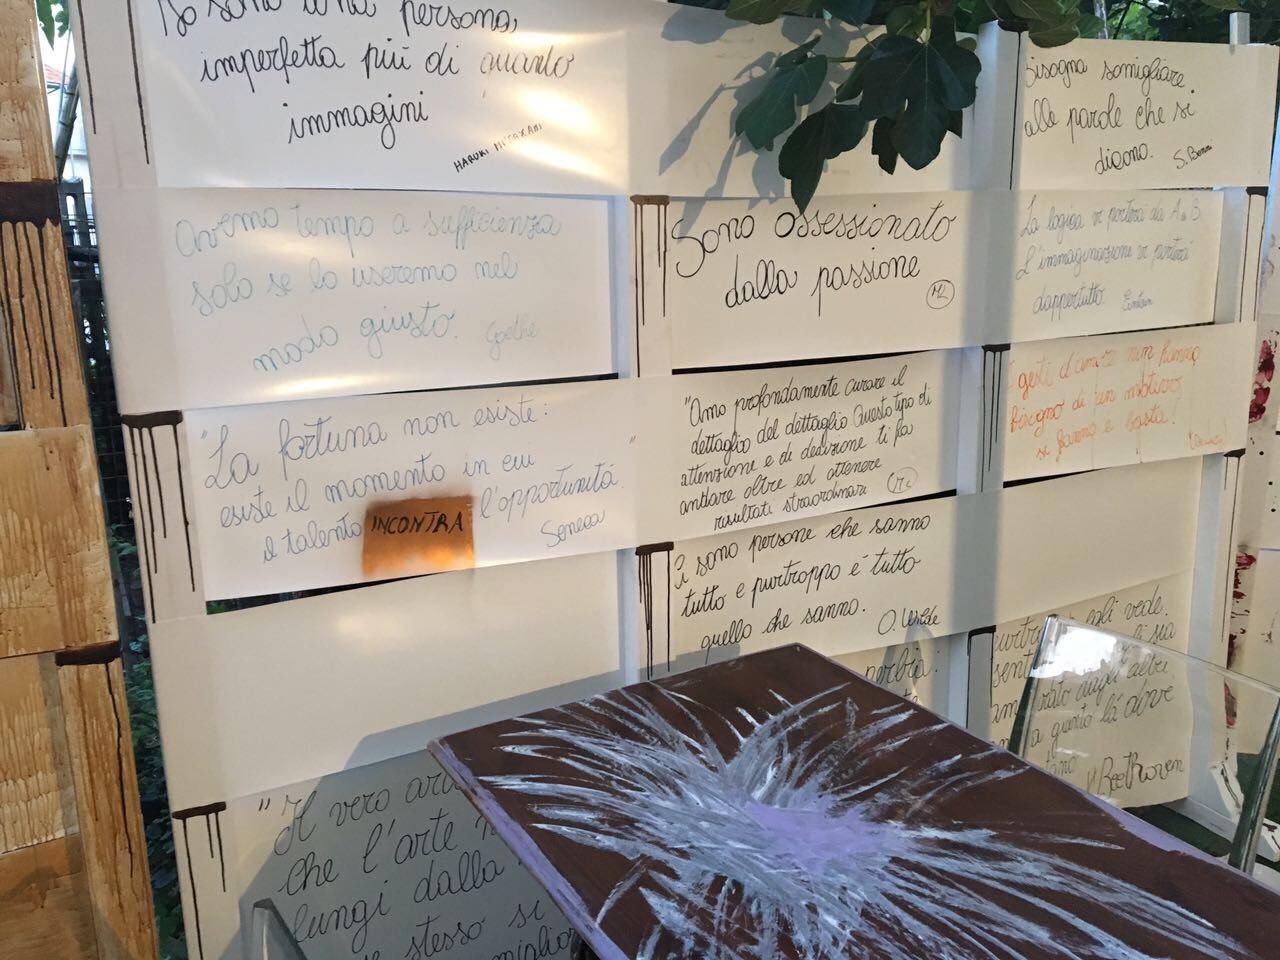 Io sono una persona
imperfetta più di quanto
immagini
HARUKI MURAKAMI
Bisogna somigliare
alle parole che si
dicono.
S. Benni
Avremo tempo a sufficienza
solo se lo useremo nel
modo giusto.
Goethe
Sono ossessionato
dalla passione
La logica vi porterà da A a B.
L'immaginazione vi porterà
dappertutto. Einstein
"La fortuna non esiste:
esiste il momento in cui
il talento INCONTRA l'opportunitá."
Seneca
"Amo profondamente curare il
dettaglio del dettaglio. Questo tipo di
attenzione e di dedizione ti fa
andare oltre ed ottenere
risultati straordinari
gesti d'amore non hanno
bisogno di un motivo,
si fanno e basta!
Ci sono persone che sanno
tutto e purtroppo é tutto
quello che sanno.
O. Wilde
egli vede.
sent
agli altri
a quanto lá dove
Beethoven
"Il vero
che l'arte
lungi dalla
stesso si